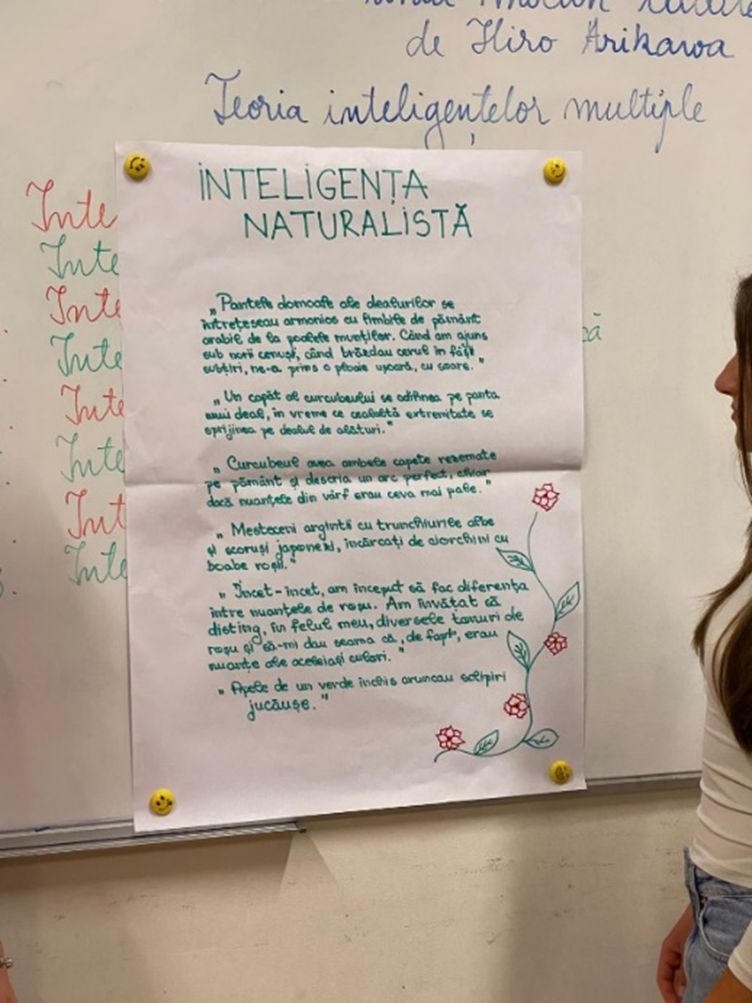 de Hiro Arikawa
Teoria inteligențelor multiple
INTELIGENȚA
NATURALISTĂ
Inte
Inte
Inte
Inte
Inte
Inte
Int
Inte
că
„Pantele domoale ale dealurilor se
întrețeseau armonios cu limbile de pământ
arabil de la poalele munților. Când am ajuns
sub norii cenușii, când brăzdau cerul în fâșii
subțiri, ne-a prins o ploaie ușoară, cu soare."
„Un capăt al curcubeului se odihnea pe panta
unui deal, în vreme ce cealaltă extremitate se
sprijinea pe dealul de alături."
„Curcubeul avea ambele capete rezemate
pe pământ și descria un arc perfect, chiar
dacă nuanțele din vârf erau ceva mai pale."
„Mesteceni argintii cu trunchiurile albe
și scoruși japonezi, încărcați de ciorchini cu
boabe roșii."
„Încet-încet, am început să fac diferența
între nuanțele de roșu. Am învățat să
disting, în felul meu, diversele tonuri de
roșu și să-mi dau seama că, de fapt, erau
nuanțe ale aceleiași culori."
„Apele de un verde închis aruncau sclipiri
jucăușe."